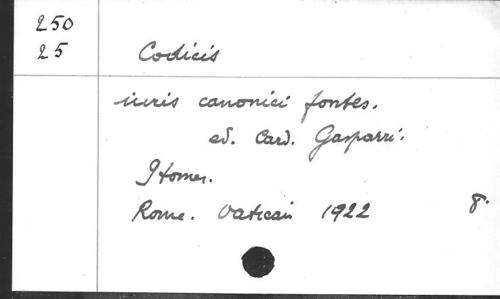 250
25
Codicis
iuris canonici fontes.
ed. Card. Gasparri.
9 tomes.
Rome. Vatican 1922 8.